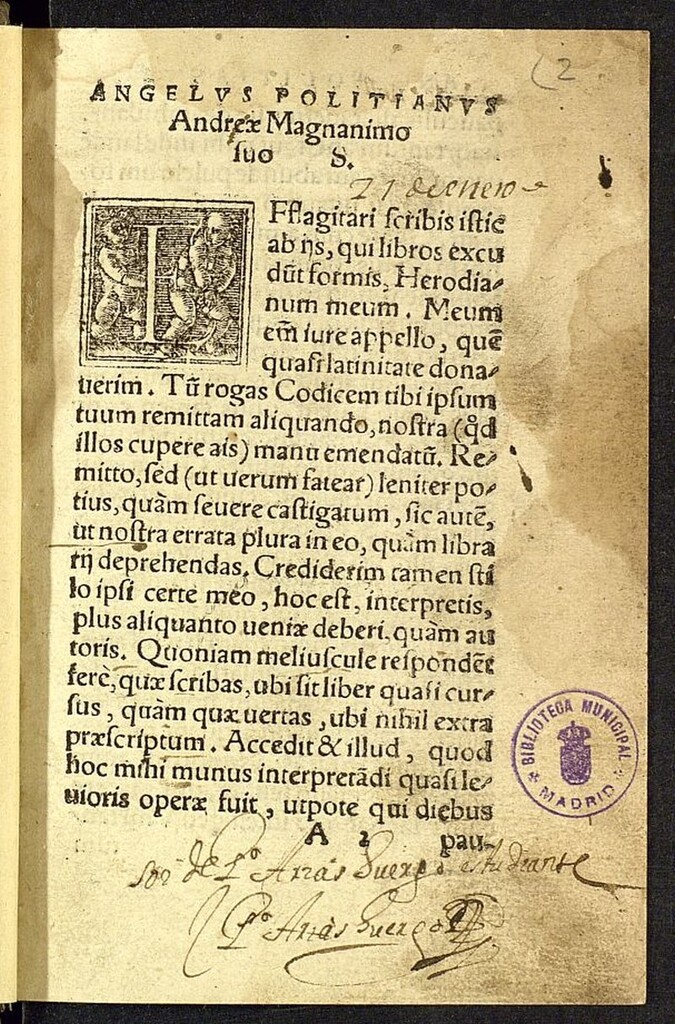 (2
ANGELVS POLITIANVS
Andreæ Magnanimo
suo S.
21 de enero
EFflagitari scribis istic
ab ijs, qui libros excu
dũt formis, Herodia-
num meum. Meum
em̃ iure appello, quẽ
quasi latinitate dona-
uerim. Tũ rogas Codicem tibi ipsum
tuum remittam aliquando, nostra (q̊d
illos cupere ais) manu emendatũ. Re-
mitto, sed (ut uerum fatear) leniter po-
tius, quàm seuere castigatum, sic autẽ,
ut nostra errata plura in eo, quàm libra
rij deprehendas. Crediderim tamen sti
lo ipsi certe meo, hoc est, interpretis,
plus aliquanto ueniæ deberi, quàm au
toris. Quoniam meliuscule respondẽt
ferè, quæ scribas, ubi sit liber quasi cur-
sus, quàm quæ uertas, ubi nihil extra
præscriptum. Accedit & illud, quod
hoc mihi munus interpretãdi quasi le-
uioris operæ fuit, utpote qui diebus
A 2 pau-
BIBLIOTECA MUNICIPAL
MADRID
soi de Po Arias huergo estudiante
Po Arias huergo